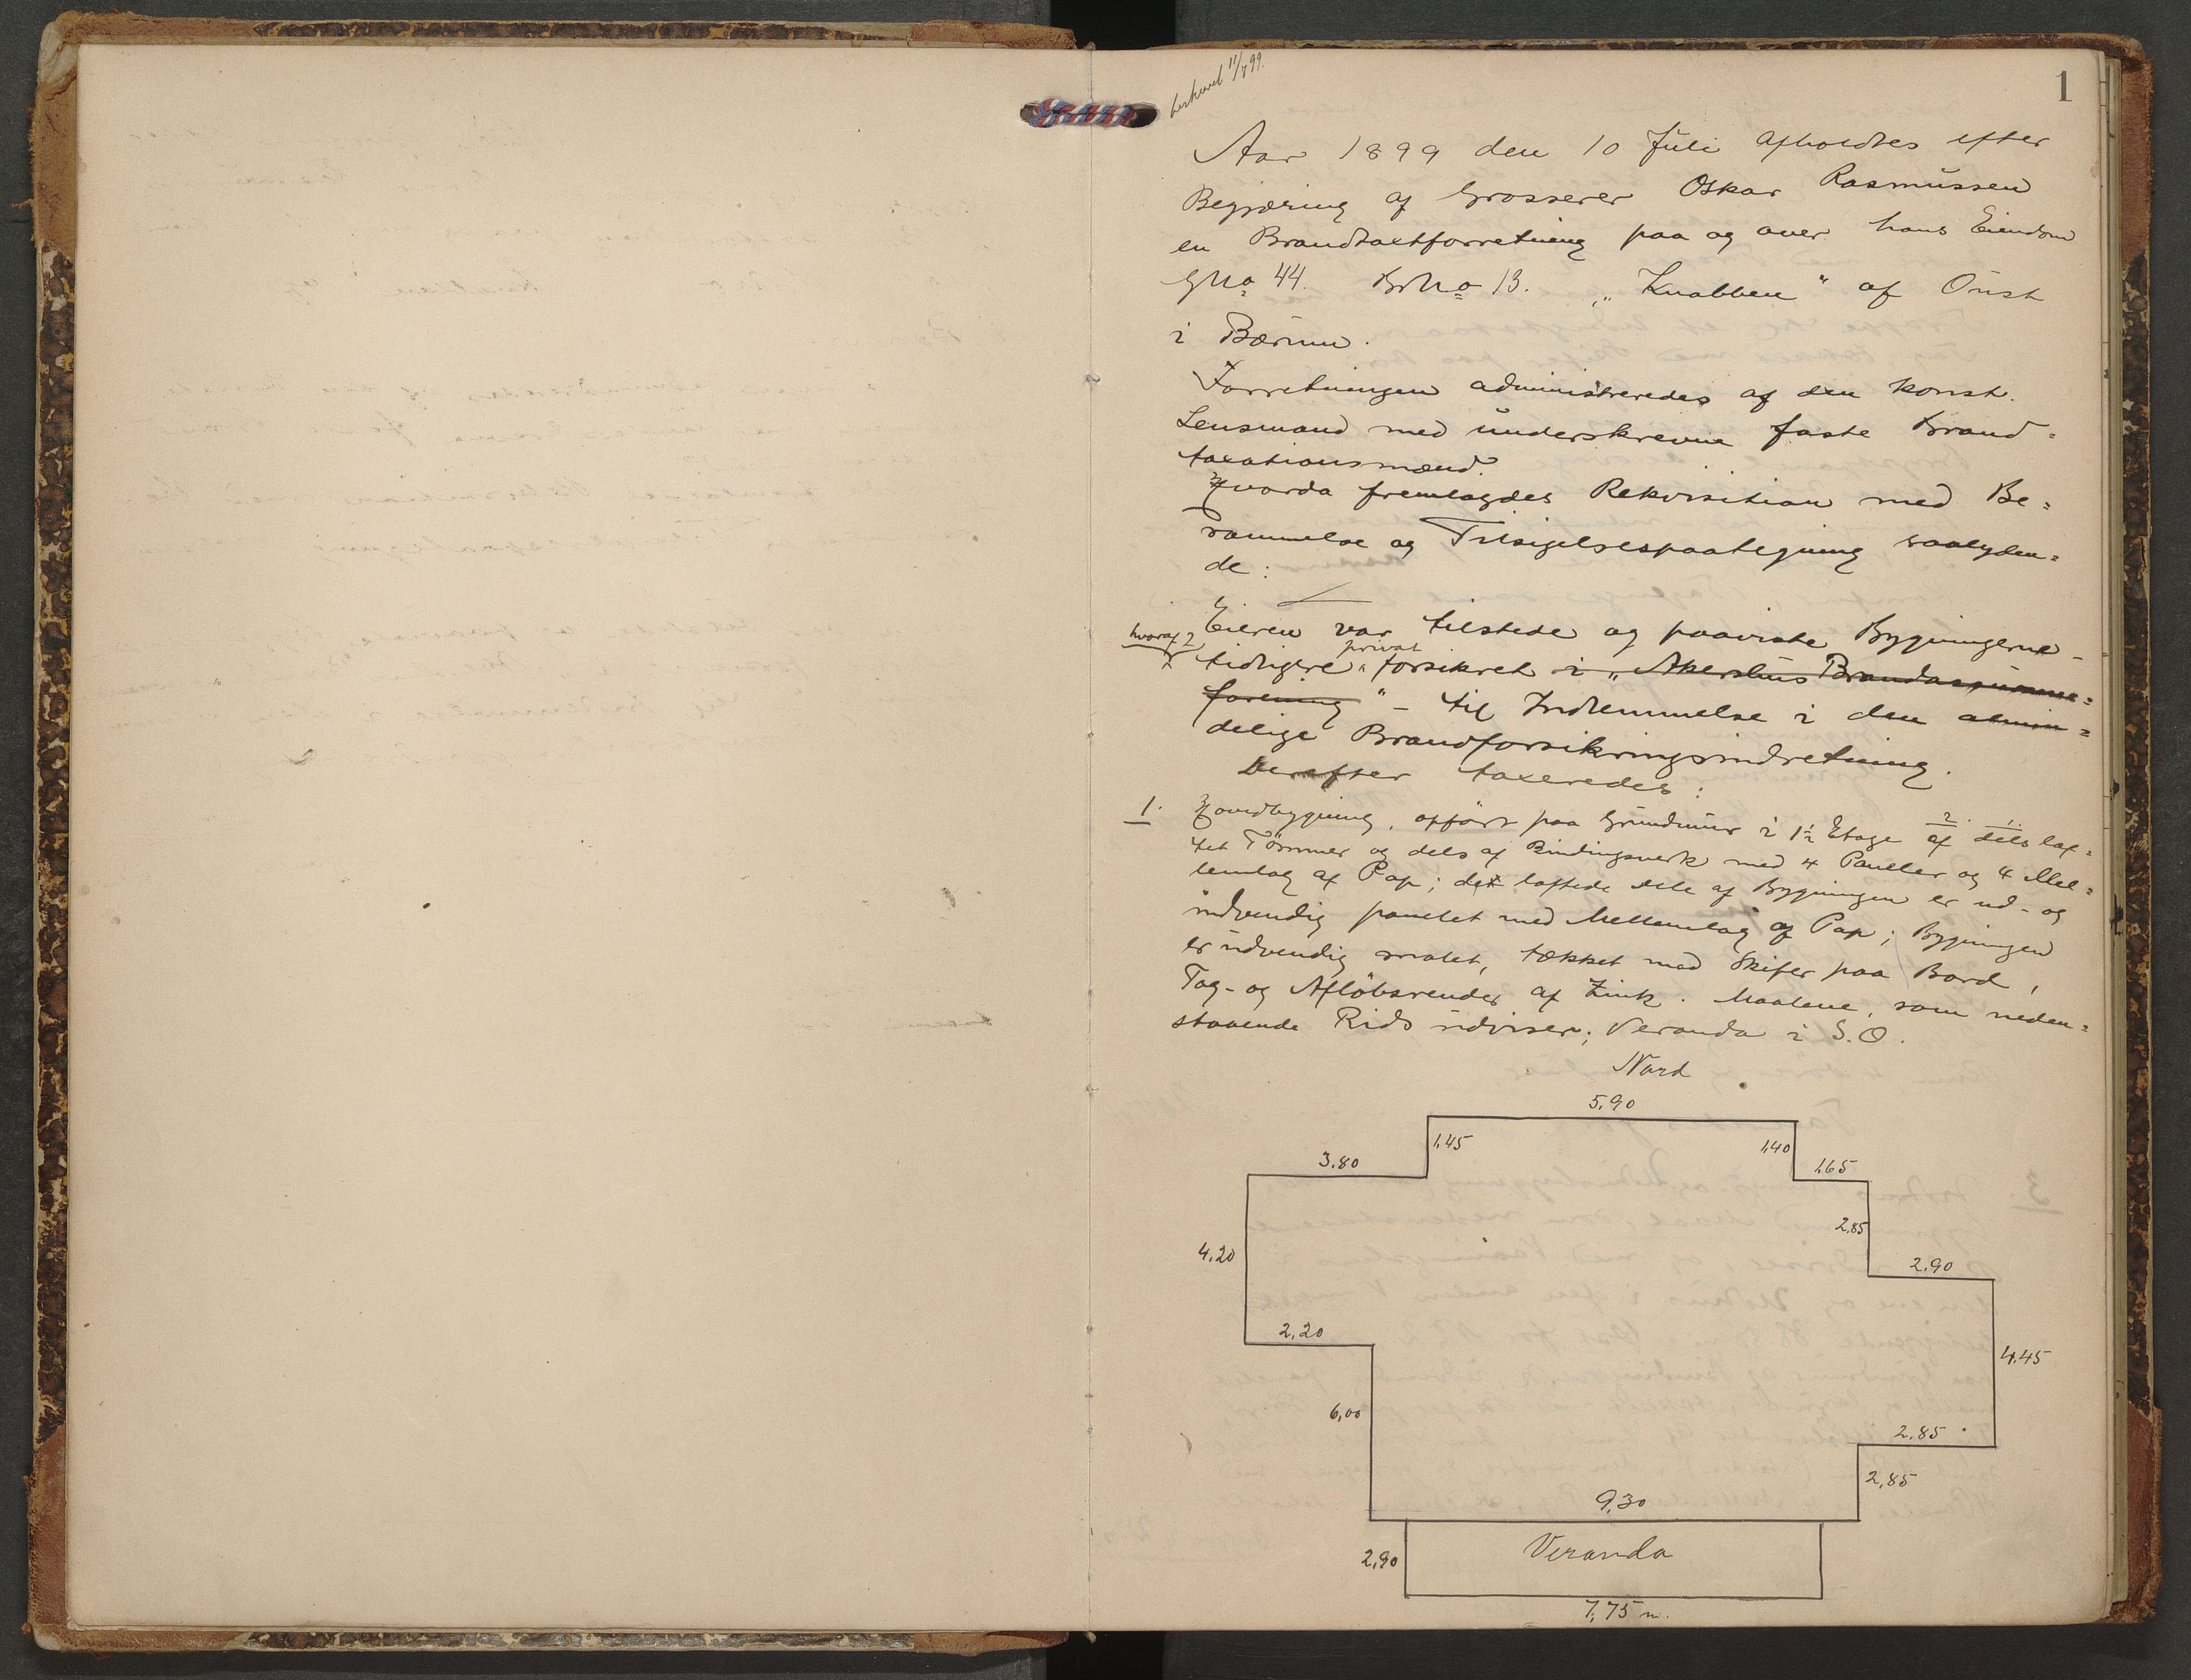 beskrevet 11/7 99.
1
Aar 1899 den 10 Juli afholdtes efter
Begjæring af Grosserer Oskar Rasmussen
en Brandtaxtforretning paa og over hans Eiendom
GNo 44. BNo 13. „Knabben“ af Önst
i Bærum.
Forretningen administreredes af den konst.
Lensmand med underskrevne faste Brand-
taxationsmænd.
Hvorda fremlagdes Rekvisition med Be-
rammelse og Tilsigelsespaategning saalyden-
de:
Eieren var tilstede og paaviste Bygningerne –
hvoraf 2
tidligere privat forsikret i „Akershus Brandassurance-
forening“ – til Indlemmelse i den almin-
delige Brandforsikringsindretning.
Derefter taxeredes:
1. Hovedbygning, opført paa Grundmur i 1½ Etage af dels laf-
2. 1.
tet Tömmer og dels af Bindingsverk med 4 Paneller og 4 Mel-
lemlag af Pap; det laftede Dele af Bygningen er ud- og
indvendig panelet med Mellemlag af Pap; Bygningen
er udvendig malet, tækket med Skifer paa Bord,
Tag- og Aflöbsrender af Zink. Maalene, som neden-
staaende Rids udviser; Veranda i S.O.
Nord
5,90
1,45
1,40
3,80
1,65
2,85
4,20
2,90
2,20
4,45
6,00
2,85
2,85
9,30
Veranda
2,90
7,75 m.